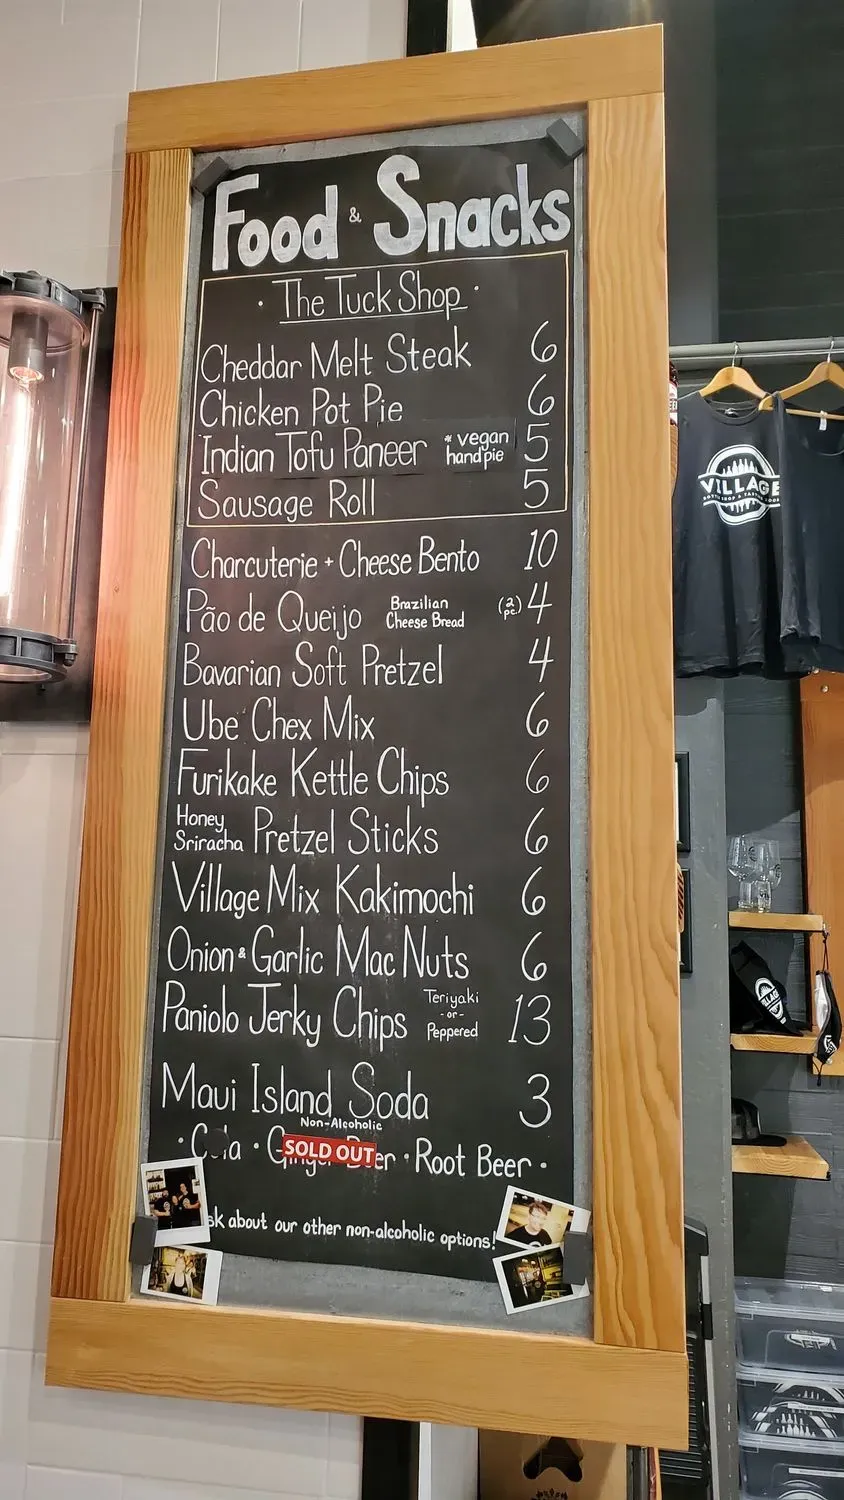 Food & Snacks
· The Tuck Shop ·
Cheddar Melt Steak 6
Chicken Pot Pie 6
Indian Tofu Paneer * vegan handpie 5
Sausage Roll 5
Charcuterie + Cheese Bento 10
Pão de Queijo Brazilian Cheese Bread (2 pc.) 4
Bavarian Soft Pretzel 4
Ube Chex Mix 6
Furikake Kettle Chips 6
Honey Sriracha Pretzel Sticks 6
Village Mix Kakimochi 6
Onion & Garlic Mac Nuts 6
Paniolo Jerky Chips Teriyaki - or - Peppered 13
Maui Island Soda 3
Non-Alcoholic
· Cola · Ginger Beer · Root Beer ·
SOLD OUT
sk about our other non-alcoholic options!
VILLAGE
BOTTLE SHOP & TASTING ROOM
VILLAGE